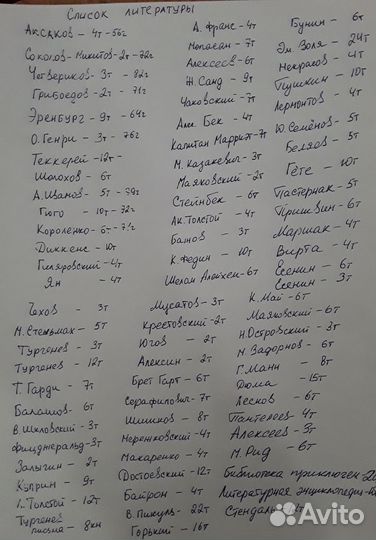 Список литературы
Аксаков - 4т-56г
Соколов-Микитов-2т-72г
Четвериков - 3т - 82г
Грибоедов - 2т - 71г
Эренбург - 9т - 64г
О. Генри - 3т - 76г
Теккерей - 12т -
Шолохов - 6т
А. Иванов - 5т - 79г
Гюго - 10т - 72г
Короленко - 6т - 71г
Диккенс - 10т
Гиляровский - 4т
Ян - 4т
Чехов - 3т
М. Стельмах - 5т
Тургенев - 3т
Тургенев - 12т
Т. Гарди - 7т
Балашов - 6т
В. Шкловский - 3т
Фицджеральд - 3т
Залыгин - 2т
Куприн - 9т
Л. Толстой - 12т
Тургенев
письма - 8кн
А. франс - 4т
Мопасан - 7т
Алексеев - 6т
Ж. Санд - 9т
Чаковский - 7т
Ал. Бек - 4т
Капитан Марриэт - 7т
М. Казакевич - 3т
Маяковский - 2т
Стейнбек - 6т
Ак. Толстой - 4т
Бажов - 3т
К. Федин - 10т
Шолом Алейхем - 6т
Мусатов - 3т
Крестовский - 2т
Югов - 2т
Алексин - 2т
Брет Гарт - 6т
Серафилович - 7т
Шишков - 8т
Мережковский - 4т
Макаренко - 4т
Достоевский - 12т
Байрон - 4т
В. Пикуль - 22т
Горький - 16т
Бунин - 6т
Эм. Золя - 24т
Некрасов - 4т
Пушкин - 10т
Лермонтов - 4т
Ю. Семёнов - 5т
Беляев - 5т
Гёте - 10т
Пастернак - 5т
Пришвин - 6т
Маршак - 4т
Вирта - 4т
Есенин - 6т
Есенин - 3т
К. Май - 6т
Маяковский - 6т
Н. Островский - 3т
Н. Задорнов - 6т
Г. Манн - 8т
Дюма - 15т
Лесков - 6т
Пантелеев - 4т
Алексеев - 3т
М. Рид - 6т
Библиотека приключен -
Литературная энциклопедия -
Стендаль
Avito